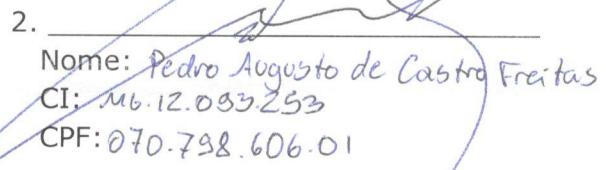 2.
Nome: Pedro Augusto de Castro Freitas
CI: MG.12.093.253
CPF: 070.798.606.01